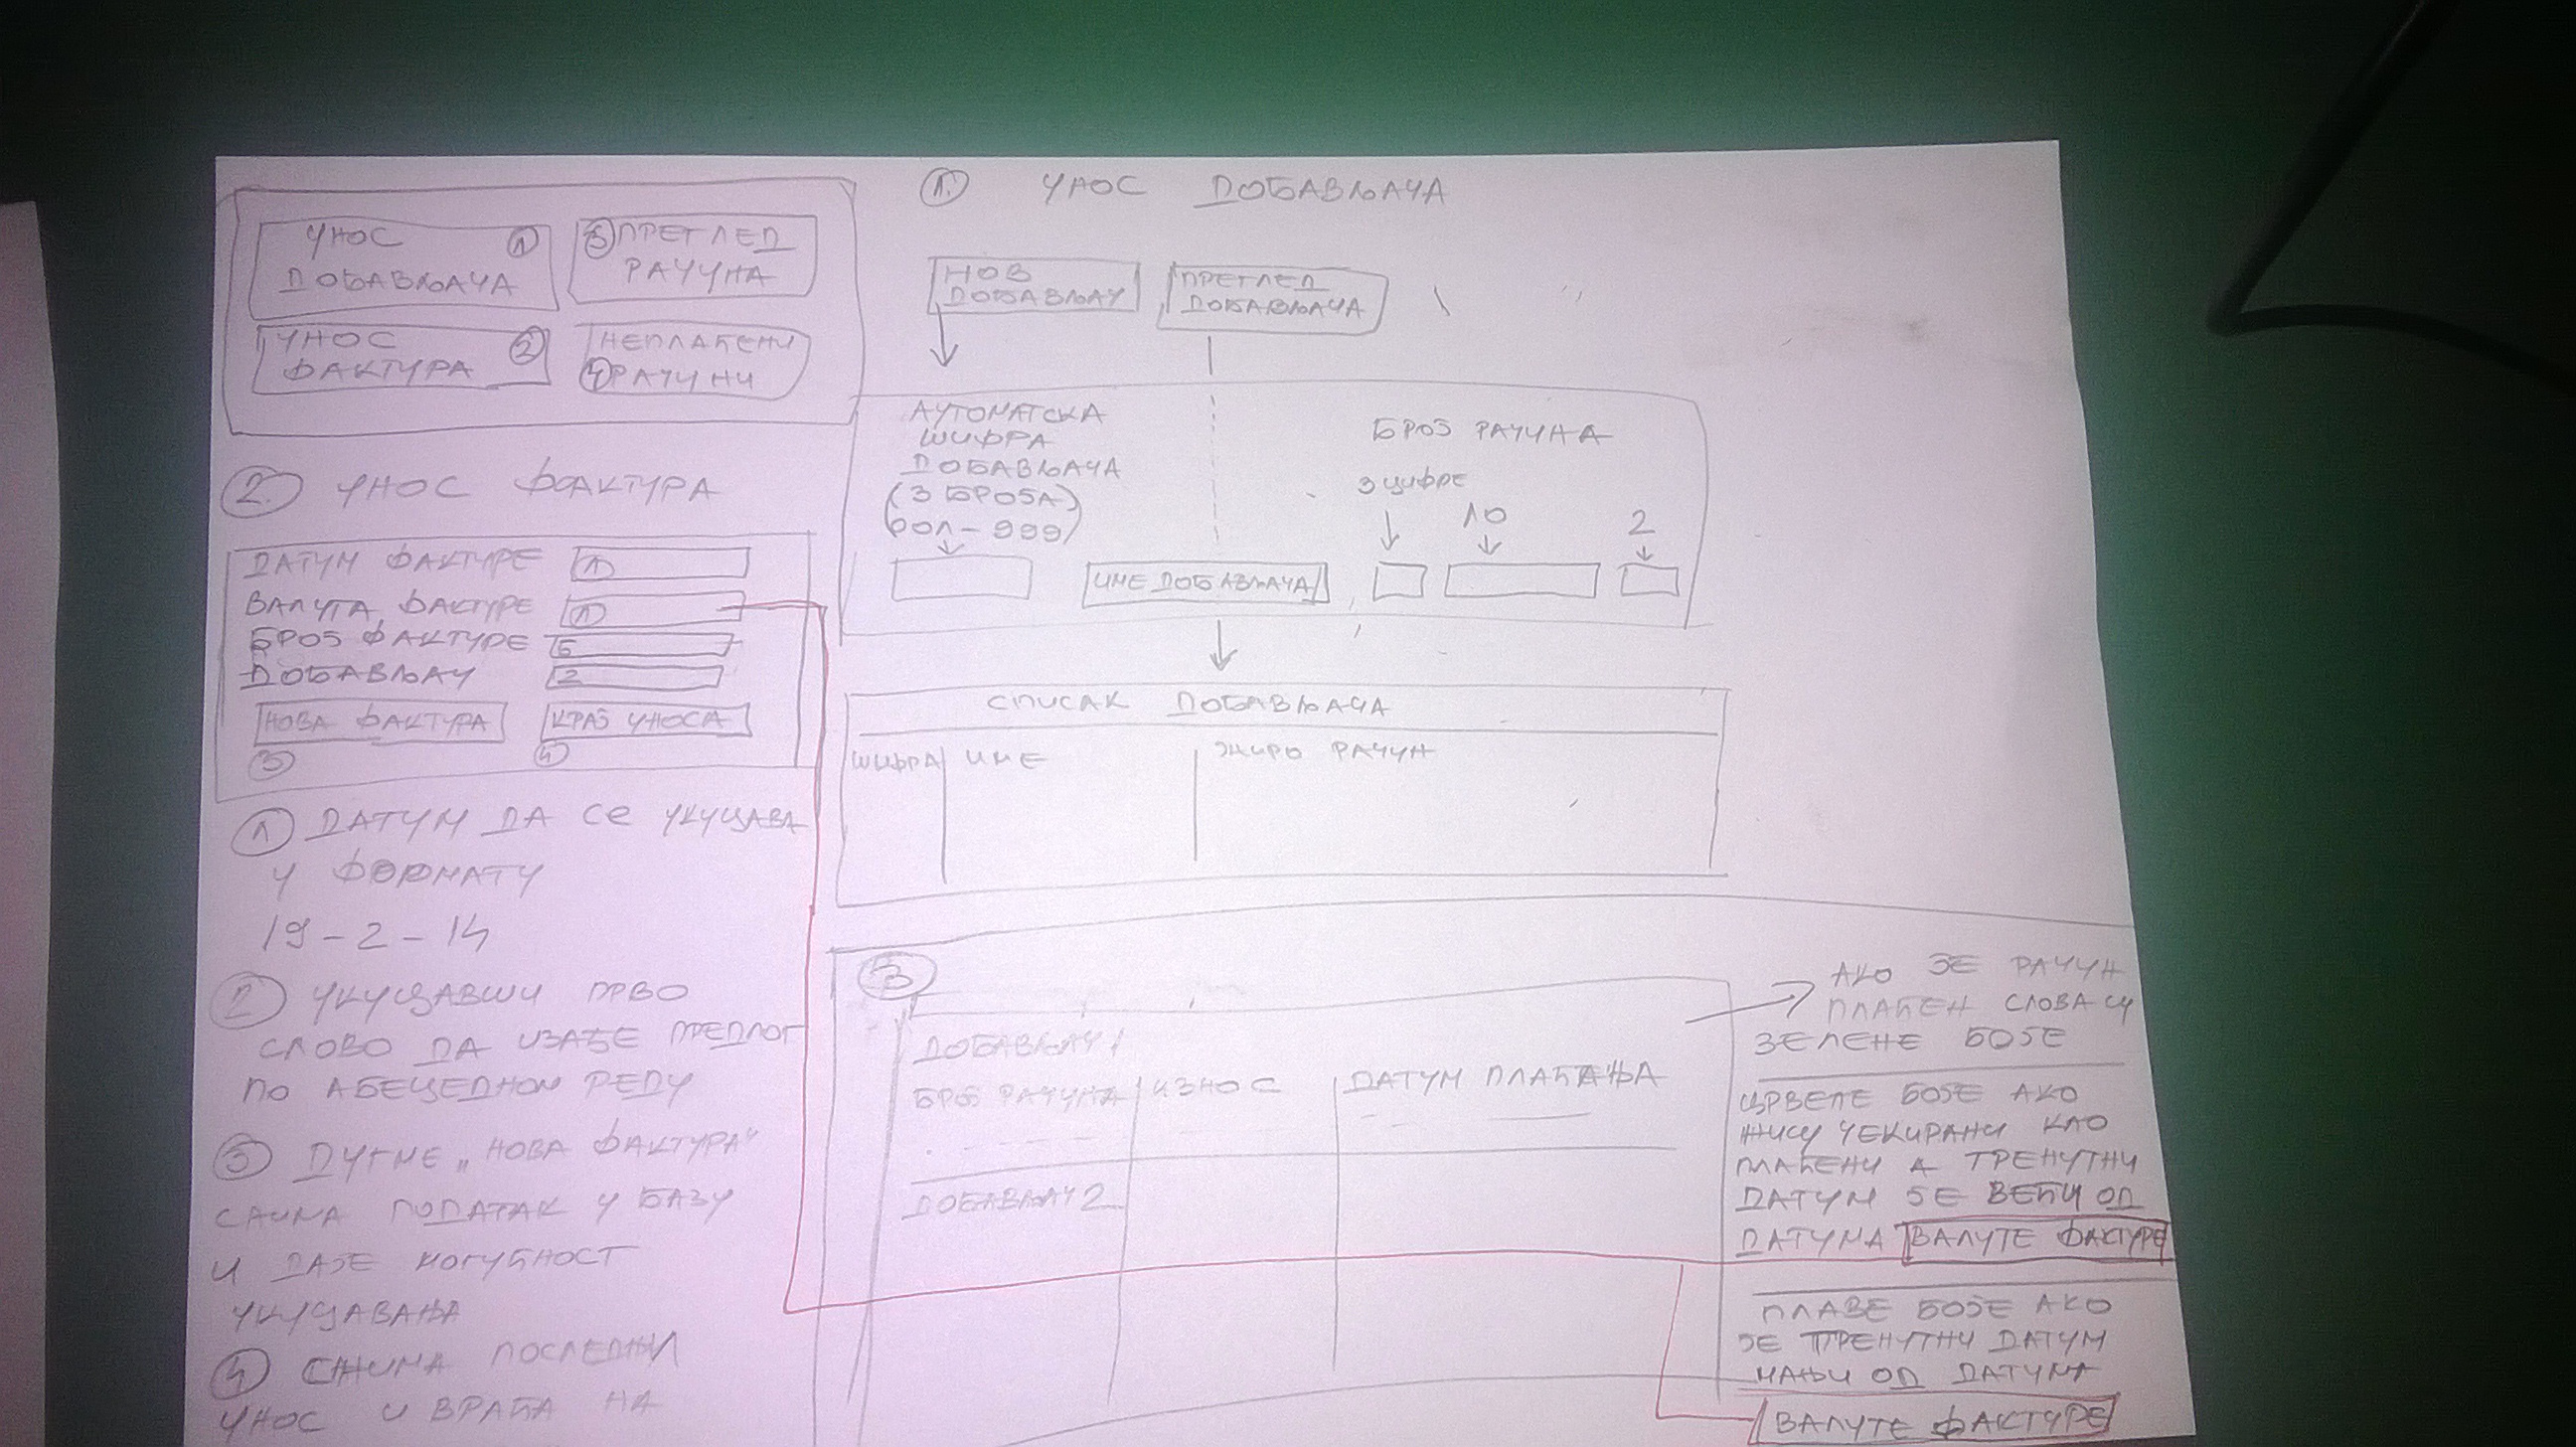 УНОС ①
ДОБАВЉАЧА
③ ПРЕГЛЕД
РАЧУНА
УНОС ②
ФАКТУРА
НЕПЛАЋЕНИ
④ РАЧУНИ
② УНОС ФАКТУРА
ДАТУМ ФАКТУРЕ ①
ВАЛУТА ФАКТУРЕ ①
БРОЈ ФАКТУРЕ 5
ДОБАВЉАЧ 2
НОВА ФАКТУРА КРАЈ УНОСА
③ ④
① ДАТУМ ДА СЕ УКУЦАВА
У ФОРМАТУ
19-2-14
② УКУЦАВШИ ПРВО
СЛОВО ДА ИЗАЂЕ ПРЕДЛОГ
ПО АБЕЦЕДНОМ РЕДУ
③ ДУГМЕ „НОВА ФАКТУРА"
СНИМА ПОДАТАК У БАЗУ
И ДАЈЕ МОГУЋНОСТ
УКУЦАВАЊА
④ СНИМА ПОСЛЕДЊИ
УНОС И ВРАЋА НА
①. УНОС ДОБАВЉАЧА
НОВ
ДОБАВЉАЧ
ПРЕГЛЕД
ДОБАВЉАЧА
АУТОМАТСКА
ШИФРА
ДОБАВЉАЧА
(3 БРОЈА)
(001-999)
ИМЕ ДОБАВЉАЧА
БРОЈ РАЧУНА
3 ЦИФРЕ
10
2
СПИСАК ДОБАВЉАЧА
ШИФРА ИМЕ ЖИРО РАЧУН
③
ДОБАВЉАЧ 1
БРОЈ РАЧУНА ИЗНОС ДАТУМ ПЛАЋАЊА
ДОБАВЉАЧ 2
АКО ЈЕ РАЧУН
ПЛАЋЕН СЛОВА СУ
ЗЕЛЕНЕ БОЈЕ
ЦРВЕНЕ БОЈЕ АКО
НИСУ ЧЕКИРАНИ КАО
ПЛАЋЕНИ А ТРЕНУТНИ
ДАТУМ ЈЕ ВЕЋИ ОД
ДАТУМА ВАЛУТЕ ФАКТУРЕ
ПЛАВЕ БОЈЕ АКО
ЈЕ ТРЕНУТНИ ДАТУМ
МАЊИ ОД ДАТУМА
ВАЛУТЕ ФАКТУРЕ